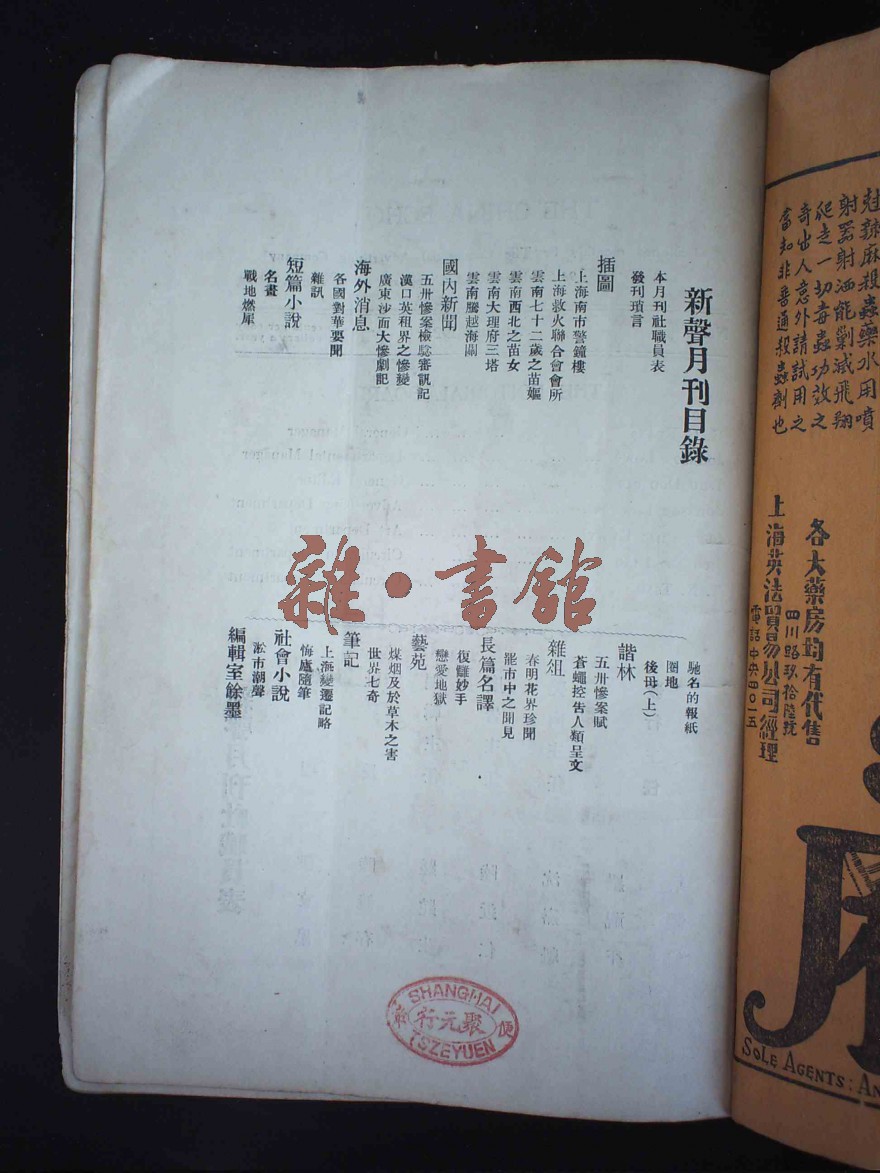 新聲月刊目錄
本月刊社職員表
發刊瑣言
插圖
上海南市警鐘樓
上海救火聯合會會所
雲南七十二歲之苗嫗
雲南西北之苗女
雲南大理府三塔
雲南騰越海關
國內新聞
五卅慘案檢驗審訊記
漢口英租界之慘變
廣東沙面大慘劇記
海外消息
各國對華要聞
雜訊
短篇小說
名畫
戰地燃犀
馳名的報紙
圈地
後母(上)
諧林
五卅慘案賦
蒼蠅控告人類呈文
雜俎
春明花界珍聞
罷市中之聞見
長篇名譯
復讎妙手
戀愛地獄
藝苑
煤烟及於草木之害
世界七奇
筆記
上海變遷記略
悔廬隨筆
社會小說
淞市潮聲
編輯室餘墨
雜·書館
SHANGHAI
聚元行
TSZEYUEN
尅辣麻殺蟲藥水用噴
射器射洒能勦滅飛翔
爬走一切毒蟲功效之
奇出人意外請試用之
當知非普通殺蟲劑也
各大藥房均有代售
四川路玖拾陸號
上海英法貿易公司經理
電話中央四〇一五
SOLE AGENTS: AN